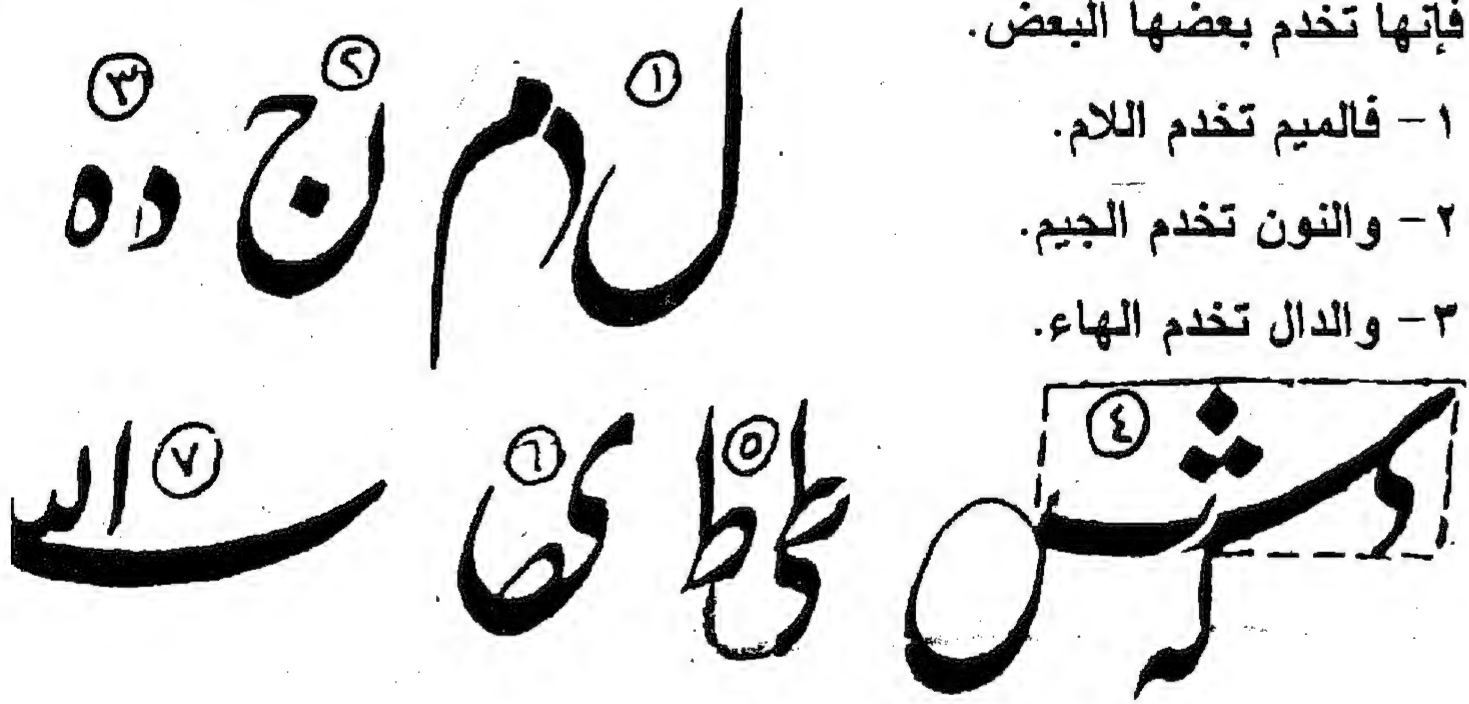 فإنها تخدم بعضها البعض.
١ - فالميم تخدم اللام.
٢ - والنون تخدم الجيم.
٣ - والدال تخدم الهاء.
١
ل م
٢
ج
٣
د ه
٤
٥
٦
٧